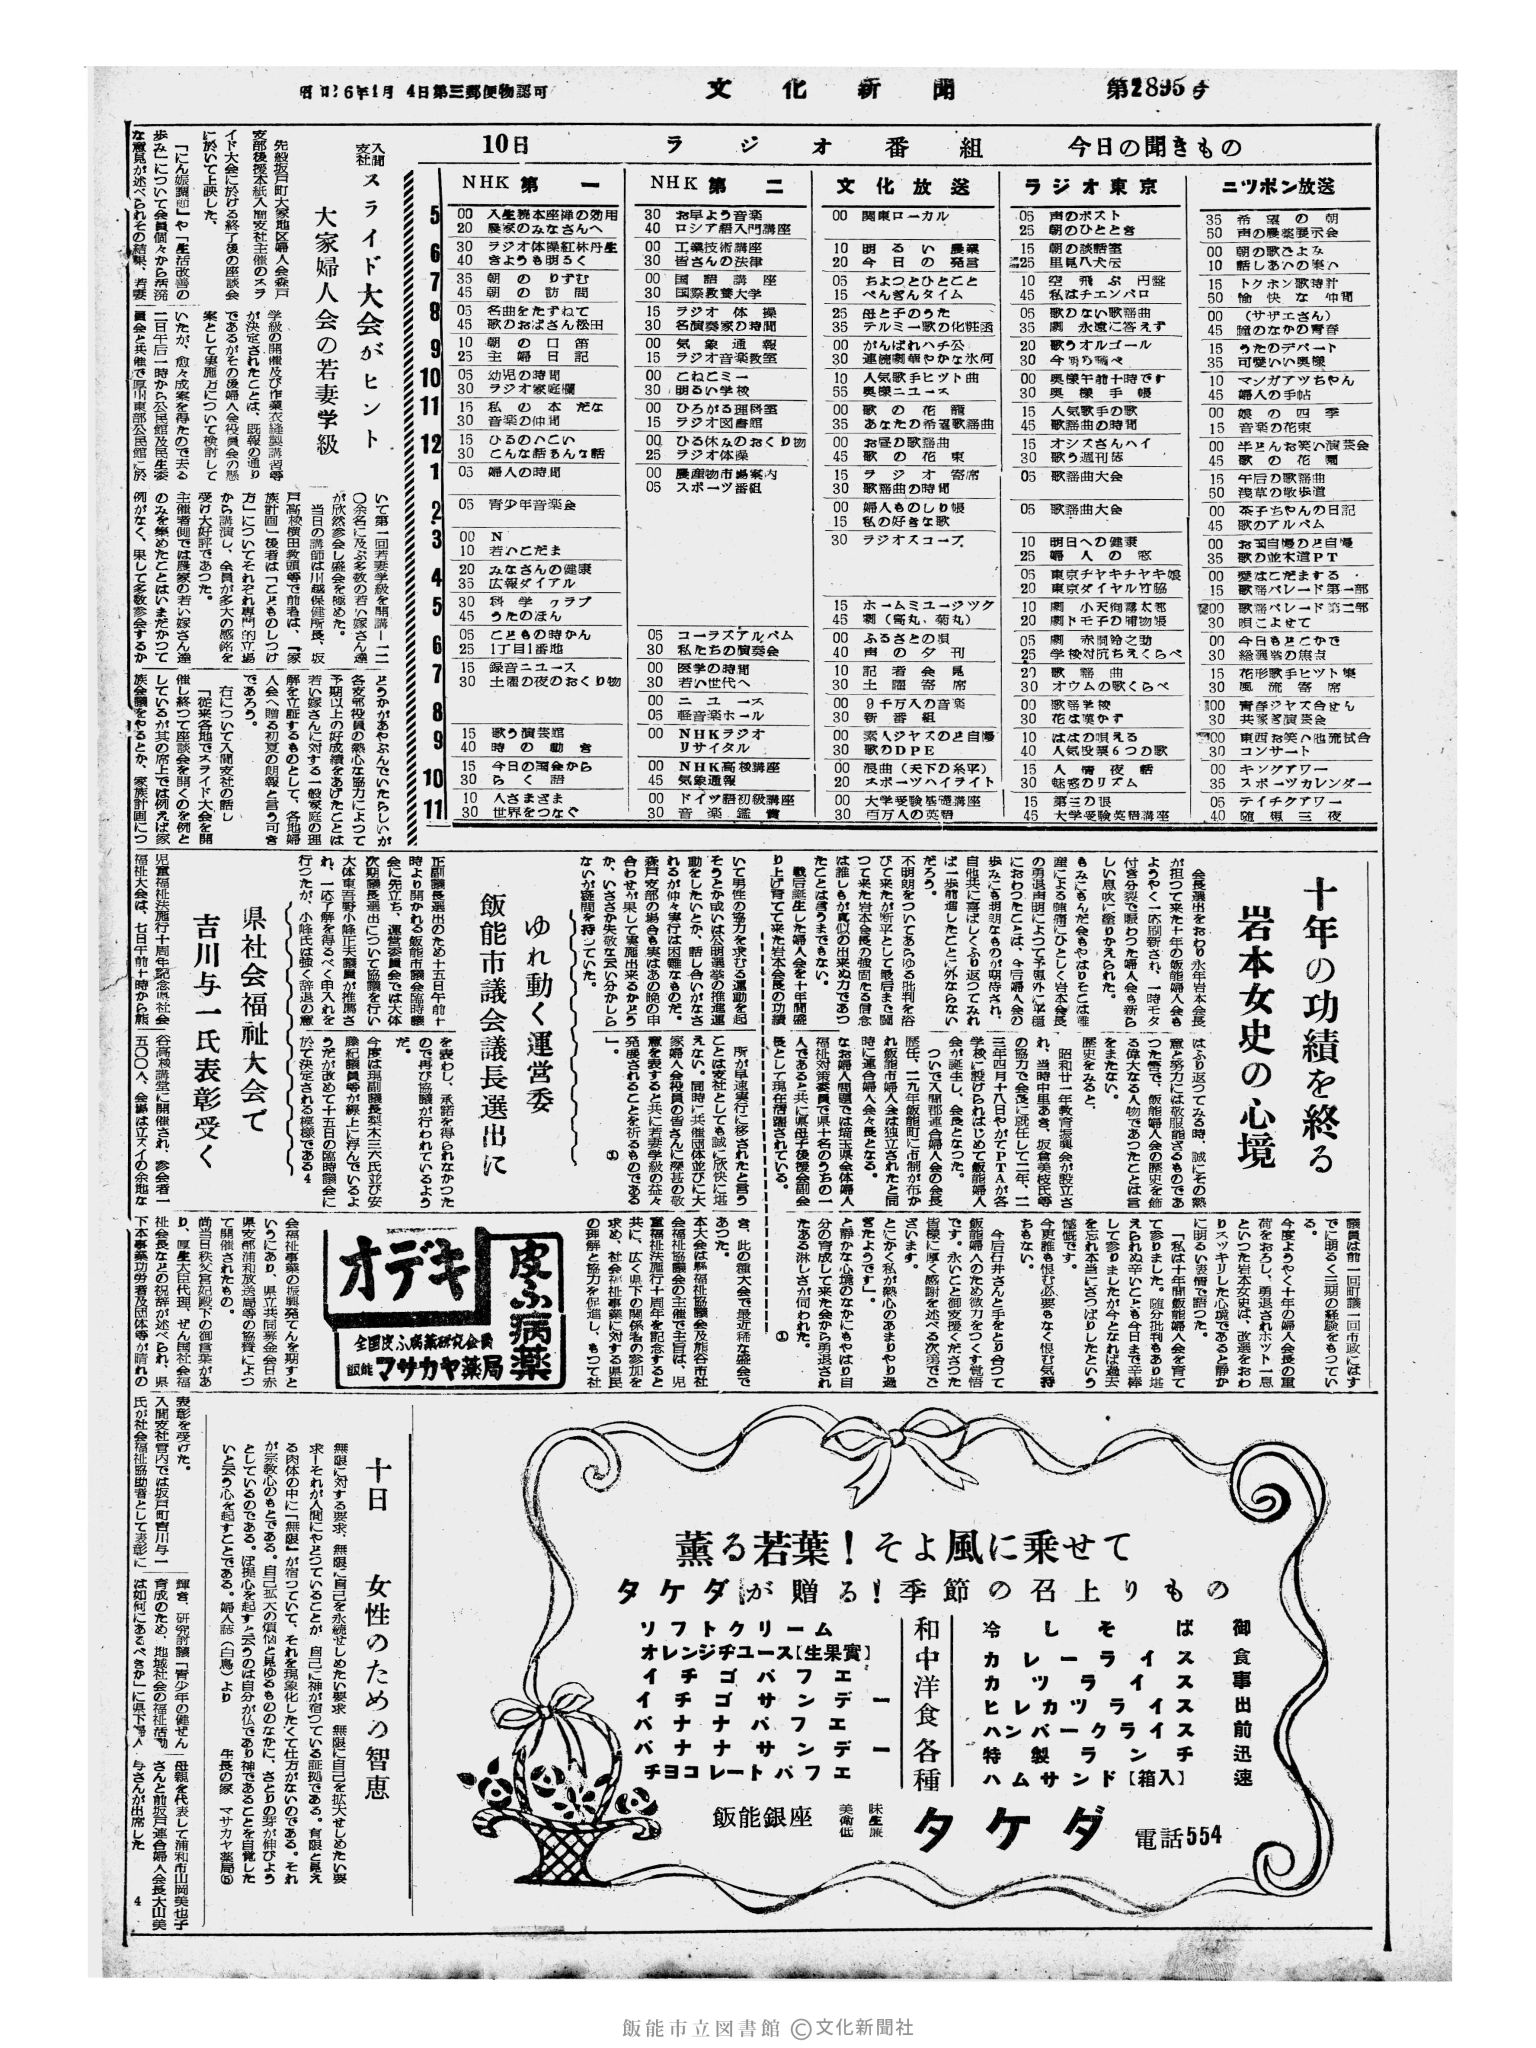 第2895号
文化新聞
6年1月4日第三郵便物認可
10日 ラジオ番組 今日の聞きもの
NHK第一
5 00 人生読本座禅の効用
20 農家のみなさんへ
6 30 ラジオ体操紅林丹生
40 きようも明るく
7 35 朝のりずむ
45 朝の訪問
8 05 名曲をたずねて
45 歌のおばさん松田
9 10 朝の口笛
25 主婦日記
10 05 幼児の時間
30 ラジオ家庭欄
11 15 私の本だな
30 音楽の仲間
12 15 ひるのいこい
30 こんな話あんな話
1 05 婦人の時間
2 05 青少年音楽会
3 00 N
10 若いこだま
4 20 みなさんの健康
35 広報ダイアル
5 30 科学クラブ
45 うたのほん
6 05 こどもの時かん
25 1丁目1番地
7 15 録音ニュース
30 土曜の夜のおくり物
9 15 歌う演芸館
40 時の動き
10 15 今日の国会から
30 らく語
11 10 人さまざま
30 世界をつなぐ
NHK第二
30 お早よう音楽
40 ロシア語入門講座
00 工業技術講座
30 皆さんの法律
00 国語講座
30 国際教養大学
15 ラジオ体操
30 名演奏家の時間
00 気象通報
15 ラジオ音楽教室
00 こねこミー
30 明るい学校
00 ひろがる理科室
15 ラジオ図書館
00 ひる休みのおくり物
25 ラジオ体操
00 農産物市場案内
05 スポーツ番組
05 コーラスアルバム
30 私たちの演奏会
00 医学の時間
30 若い世代へ
00 ニュース
05 軽音楽ホール
00 NHKラジオ
リサイタル
00 NHK高校講座
45 気象通報
00 ドイツ語初級講座
30 音楽鑑賞
文化放送
00 関東ローカル
10 明るい農業
20 今日の発言
05 ちよつとひとこと
15 ぺんぎんタイム
25 母と子のうた
35 テルミー歌の化粧函
00 がんばれハチ公
30 連続劇華やかな氷河
10 人気歌手ヒツト曲
55 奥様ニュース
00 歌の花籠
35 あなたの希望歌謡曲
00 お昼の歌謡曲
45 歌の花束
15 ラジオ寄席
30 歌謡曲の時間
00 婦人ものしり帳
15 私の好きな歌
30 ラジオスコープ
15 ホームミュージツク
00 ふるさとの唄
40 声の夕刊
10 記者会見
30 土曜寄席
00 9千万人の音楽
30 新番組
00 素人ジヤズのど自慢
30 歌のDPE
00 浪曲(天下の糸平)
20 スポーツハイライト
00 大学受験基礎講座
30 百万人の英語
ラジオ東京
05 声のポスト
25 朝のひととき
15 朝の談話室
25 里見八犬伝
10 空飛ぶ円盤
45 私はチエンバロ
05 歌のない歌謡曲
35 劇 永遠に答えず
20 歌うオルゴール
00 奥様午前十時です
30 奥様手帳
15 人気歌手の歌
45 歌謡曲の時間
15 オシズさんハイ
30 歌う週刊誌
05 歌謡曲大会
05 歌謡曲大会
10 明日への健康
25 婦人の窓
05 東京チヤキチヤキ娘
20 東京ダイヤル竹脇
20 劇トモ子の捕物帳
05 劇 赤胴鈴之助
25 学校対抗ちえくらべ
20 歌謡曲
30 オウムの歌くらべ
00 歌謡学校
30 花は嘆かず
10 ははの唄える
40 人気投票6つの歌
15 人情夜話
30 魅惑のリズム
15 第三の眼
45 大学受験英語講座
ニツポン放送
35 希望の朝
50 声の農業展示会
00 朝の歌ごよみ
10 話しあいの集い
15 トクホン歌時計
50 愉快な仲間
00 (サザエさん)
45 瞳のなかの青春
15 うたのデパート
35 可愛いい奥様
10 マンガアツちやん
45 婦人の手帖
00 娘の四季
15 音楽の花束
00 半どんお笑い演芸会
45 歌の花園
15 午后の歌謡曲
50 浅草の散歩道
00 茶子ちやんの日記
45 歌のアルバム
00 お国自慢のど自慢
35 歌の並木道PT
00 愛はこだまする
15 歌謡パレード第一部
00 歌謡パレード第二部
30 唄こよせて
00 今日もどこかで
30 総選挙の焦点
15 花形歌手ヒツト集
30 風流寄席
00 青春ジヤズ合せん
00 東西お笑い他流試合
30 コンサート
00 キングアワー
35 スポーツカレンダー
05 テイチクアワー
40 随想三夜
入間支社
スライド大会がヒント
大家婦人会の若妻学級
先般坂戸町大家地区婦人会森戸
支部後援本紙入間支社主催のスラ
イド大会に於ける終了後の座談会
に於いて上映した、
「にん娠調節」や「生活改善の
歩み」について会員個々から活発
な意見が述べられその結果、若妻
学級の開催及び作業衣縫製講習等
が決定されたことは、既報の通り
であるがその後婦人会役員会の懸
案として実施方について検討して
いたが、愈々成案を得たので去る
二日午后一時から公民館及民生委
員会と共催で厚川東部公民館に於
いて第一回若妻学級を開講ー一二
〇余名に及ぶ多数の若い嫁さん達
が欣然参会し盛会を極めた。
当日の講師は川越保健所長、坂
戸高校横田教頭等で前者は、「家
族計画」後者は「こどものしつけ
方」についてそれぞれ専門的立場
から講演し、全員が多大の感銘を
受け大好評であつた。
主催者側では農家の若い嫁さん達
のみを集めたことはいまだかつて
例がなく、果して多数参会するか
どうかがあやぶんでいたらしいが
各支部役員の熱心な協力によつて
予期以上の好成績をあげたことは
若い嫁さんに対する一般家庭の理
解を立証するものとして、各地婦
人会へ贈る初夏の朗報と言う可き
であろう。
右について入間支社の話し
「従来各地でスライド大会を開
催し終つて座談会を開くのを例と
しているが其の席上では例えば家
族会議をやるとか、家族計画につ
いて男性の協力を求むる運動を起
そうとか或いは公明選挙の推進運
動をしたいとか、話し合いがなさ
れるが仲々実行は困難なものだ。
森戸支部の場合も実はあの晩の申
合わせが果して実施出来るかどう
か、いささか失敬な云い分かしら
ないが疑問を持つていた。
所が早速実行に移されたと言う
ことは支社としても誠に欣快に堪
えない。同時に共催団体並びに大
家婦人会役員の皆さんに深甚の敬
意を表すると共に若妻学級の益々
発展されることを祈るものである
」。①
十年の功績を終る
岩本女史の心境
会長選出をおわり永年岩本会長
が担つて来た十年の飯能婦人会も
ようやく一応刷新され、一時モタ
付き分裂で賑わつた婦人会も新ら
しい息吹に塗りかえられた。
もみにもんだ会もやはりそこは雌
産による強痛にひとしく岩本会長
の勇退声明によつて予想外に平穏
におわつたことは、今后婦人会の
歩みにも明朗なものが期待され、
自他共に喜ばしくふり返つてみれ
ば一歩前進したことに外ならない
だろう。
不明朗をついてあらゆる批判を浴
びて来たが断乎として最后まで闘
つて来た岩本会長の強固たる信念
は誰しもが真似の出来ぬ力であつ
たことは言うまでもない。
戦后誕生した婦人会を十年間盛
り上げ育てて来た岩本会長の功績
はふり返つてみる時、誠にその熱
意と努力には敬服能ざるものであ
つた訳で、飯能婦人会の歴史を飾
る偉大なる人物であつたことは言
をまたない。
歴史をみると、
昭和廿一年教育振興会が設立さ
れ、当時中里あき、坂倉美枝氏等
の協力で会長に就任して二年、二
三年四月十八日やがてPTAが各
学校に設けられはじめて飯能婦人
会が誕生し、会長となつた。
ついで入間郡連合婦人会の会長
歴任、二九年飯能町に市制が布か
れ飯能市婦人会は独立されたと同
時に連合婦人会々長となる。
なお婦人問題では埼玉県会体婦人
福祉対策委員で県十名のうちの一
人であると共に県母子後援会副会
長として現在活躍されている。
議員は前一回町議一回市政にはす
でに明るく三期の経験をもつてい
る。
今度ようやく十年の婦人会長の重
荷をおろし、勇退されホツト一息
といつた岩本女史は、改選をおわ
りスツキリした心境であると静か
に明るい表情で語つた。
「私は十年間飯能婦人会を育て
て参りました。随分批判もあり堪
えられぬ辛いことも今日まで辛棒
して参りましたが今となれば過去
を忘れ本当にさつぱりしたという
感慨です。
今更誰も恨む必要もなく恨む気持
ちもない。
今后石井さんと手をとり合つて
飯能婦人のため微力をつくす覚悟
です。永いこと御支援くださつた
皆様に厚く感謝を述べる次第でご
ざいます。
とにかく私が熱心のあまりやり過
ぎたようです」。
と静かな心境のなかにもやはり自
分の育成して来た会から勇退され
たある淋しさが伺われた。①
ゆれ動く運営委
飯能市議会議長選出に
正副議長選出のため十五日午前十
時より開かれる飯能市議会臨時議
会に先立ち、運営委員会では大体
次期議長選出について協議を行い
大体東吾野小峰正夫議員が推薦さ
れ、一応了解を得るべく申入れを
行つたが、小峰氏は強く辞退の意
を表わし、承諾を得られなかつた
ので再び協議が行われているよう
だ。
今度は現副議長梨木三六氏並び安
藤紀議員等が線上に浮んでいるよ
うだが改めて十五日の臨時議会に
於て決定される模様である4
県社会福祉大会で
吉川与一氏表彰受く
児童福祉法施行十周年記念県社会
福祉大会は、七日午前十時から熊
谷高校講堂に開催され、参会者一
五〇〇人、会場は立スイの余地な
き、此の種大会で最近稀な盛会で
あつた。
本大会は県福祉協議会及熊谷市社
会福祉協議会の主催で主旨は、児
童福祉法施行十周年を記念すると
共に、広く県下の関係者の参加を
求め、社会福祉事業に対する県民
の理解と協力を促進し、もつて社
会福祉事業の振興発てんを期すと
いうにあり、県立共同募金会日赤
県支部浦和放送局等の協賛によつ
て開催されたもの。
尚当日秩父宮妃殿下の御言葉があ
り、厚生大臣代理、ぜん国社会福
祉会長などの祝辞が述べられ、県
下本事業功労者及団体等が晴れの
表彰を受けた。
入間支社管内では坂戸町吉川与一
氏が社会福祉協助者として表彰に
輝き、研究討議「青少年の健ぜん
育成のため、地域社会の福祉活動
は如何にあるべきか」に県下婦人
母親を代表して浦和市山岡美也子
さんと前坂戸連合婦人会長大山美
与さんが出席した 4
皮ふ病薬
オデキ
全国皮ふ病薬研究会員
飯能 マサカヤ薬局
十日 女性のための智恵
無限に対する要求、無限に自己を永続せしめたい要求 無限に自己を拡大せしめたい要
求ーそれが人間にやどつていることが、自己に神が宿つている証拠である。有限と見え
る肉体の中に「無限」が宿つていて、それを現象化したくて仕方がないのである。それ
が宗教心のもとである。自己拡大の煩悩と見ゆるもののなかに、さとりの芽が伸びよう
としているのである。ぼ提心を起すと云うのは自分が仏であり神であることを自覚した
いと云う心を起すことである。婦人誌(白鳩)より 生長の家 マサカヤ薬局⑤
薫る若葉!そよ風に乗せて
タケダが贈る!季節の召上りもの
ソフトクリーム
オレンジヂユース【生果實】
イチゴパフエ
イチゴサンデー
バナナパフエ
バナナサンデー
チヨコレートパフエ
和中洋食各種
冷しそば
カレーライス
カツライス
ヒレカツライス
ハンバークライス
特製ランチ
ハムサンド【箱入】
御食事出前迅速
飯能銀座
美術味
タケダ 電話554
飯能市立図書館 ©文化新聞社